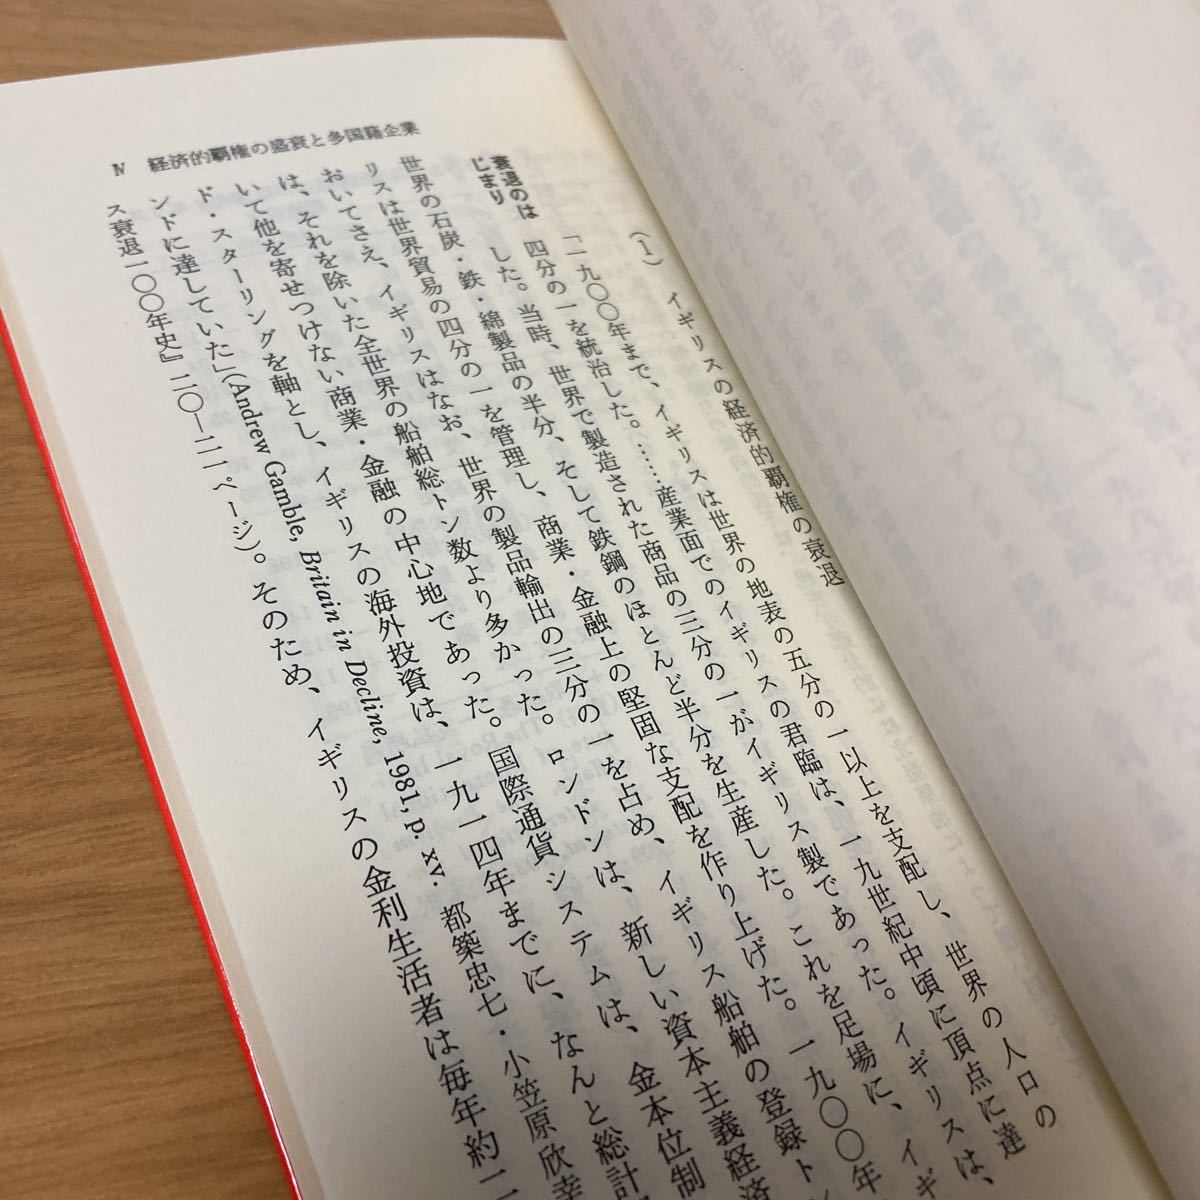 Ⅳ 経済的覇権の盛衰と多国籍企業
(1) イギリスの経済的覇権の衰退
衰退のは
じまり
「一九〇〇年まで、イギリスは世界の地表の五分の一以上を支配し、世界の人口の
四分の一を統治した。……産業面でのイギリスの君臨は、一九世紀中頃に頂点に達
した。当時、世界で製造された商品の三分の一がイギリス製であった。イギリスは、
世界の石炭・鉄・綿製品の半分、そして鉄鋼のほとんど半分を生産した。これを足場に、イギ
リスは世界貿易の四分の一を管理し、商業・金融上の堅固な支配を作り上げた。一九〇〇年
おいてさえ、イギリスはなお、世界の製品輸出の三分の一を占め、イギリス船舶の登録ト
は、それを除いた全世界の船舶総トン数より多かった。ロンドンは、新しい資本主義経済
いて他を寄せつけない商業・金融の中心地であった。国際通貨システムは、金本位制
ド・スターリングを軸とし、イギリスの海外投資は、一九一四年までに、なんと総計
ンドに達していた」(Andrew Gamble, Britain in Decline, 1981, p. xv. 都築忠七・小笠原欣幸
ス衰退一〇〇年史』二〇―二一ページ)。そのため、イギリスの金利生活者は毎年約二